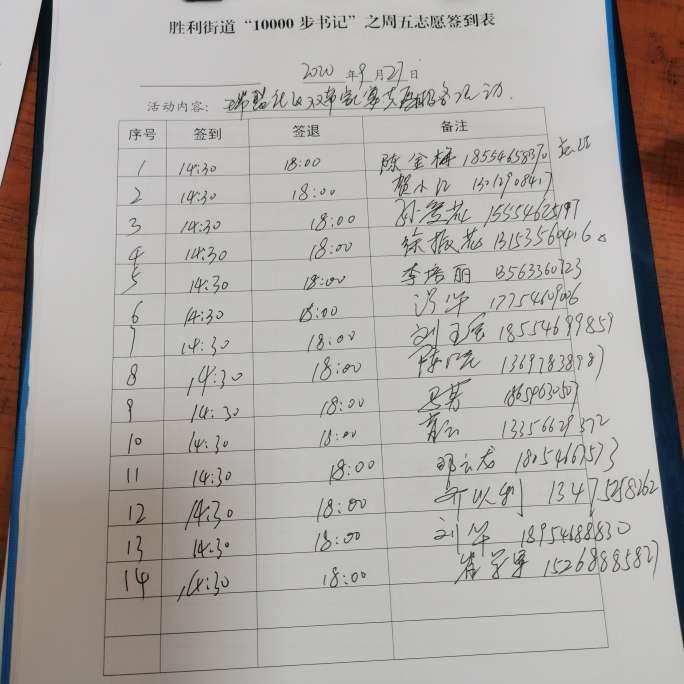 胜利街道“10000步书记”之周五志愿签到表
2020年9月27日
活动内容:
序号 签到 签退 备注
1 14:30 18:00 陈金梅 18554658370
2 14:30 18:00 贺小江
3 14:30 18:00 15554625197
4 14:30 18:00 徐振花 13153560416
5 14:30 18:00 李培丽 13563360723
6 14:30 18:00 17754609006
7 14:30 18:00 刘玉宝 18554699859
8 14:30 18:00 13697838987
9 14:30 18:00
10 14:30 18:00 13356629372
11 14:30 18:00 邓云龙 18054667573
12 14:30 18:00 13475258262
13 14:30 18:00 刘华 18954688830
14 14:30 18:00 崔学军 15268885827